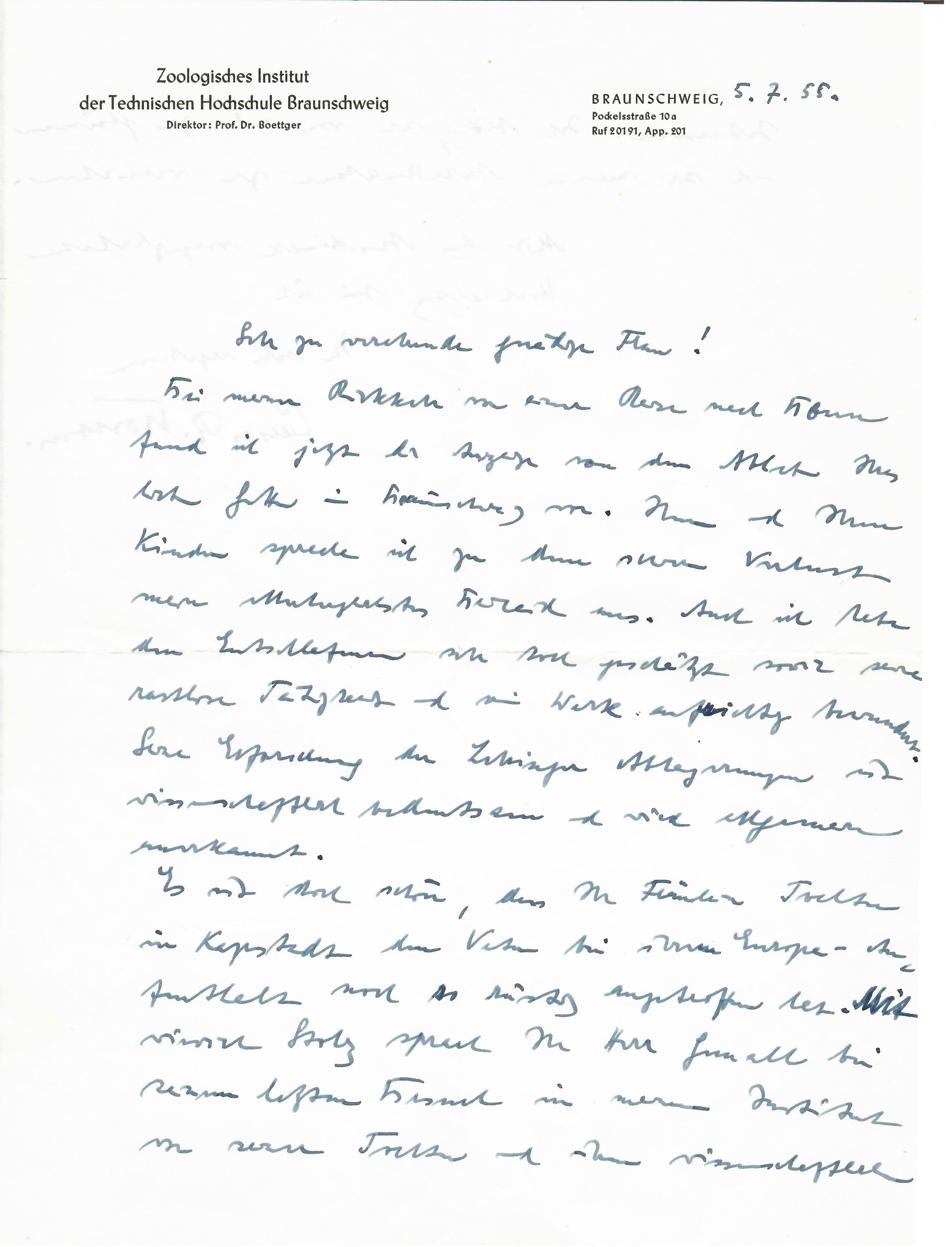 Zoologisches Institut
der Technischen Hochschule Braunschweig
Direktor: Prof. Dr. Boettger
BRAUNSCHWEIG, 5. 7. 55.
Pockelsstraße 10a
Ruf 20191, App. 201
Sehr zu verehrende gnädige Frau!
Bei meiner Rückkehr von einer Reise nach Bonn
fand ich jetzt die Anzeige von dem Ableben Ihres
Gatten in Braunschweig vor. Ihnen und Ihren
Kindern spreche ich zu dem schweren Verlust
mein Beileid aus. Auch ich habe
den Entschlafenen sehr hoch geschätzt sowie seine
rastlose Tätigkeit und sein Werk aufrichtig bewundert.
Seine Erforschung der Ablagerungen ist
wissenschaftlich bedeutsam und wird allgemein
anerkannt.
Es ist doch schön, dass Ihr Fräulein Tochter
in Kapstadt den Vater bei ihrem Europa-Au-
fenthalt noch so rüstig angetroffen hat. Mit
wieviel Stolz sprach Ihr Herr Gemahl bei
seinem letzten Besuch in meinem Institut
von seiner Tochter und ihren wissenschaftlichen